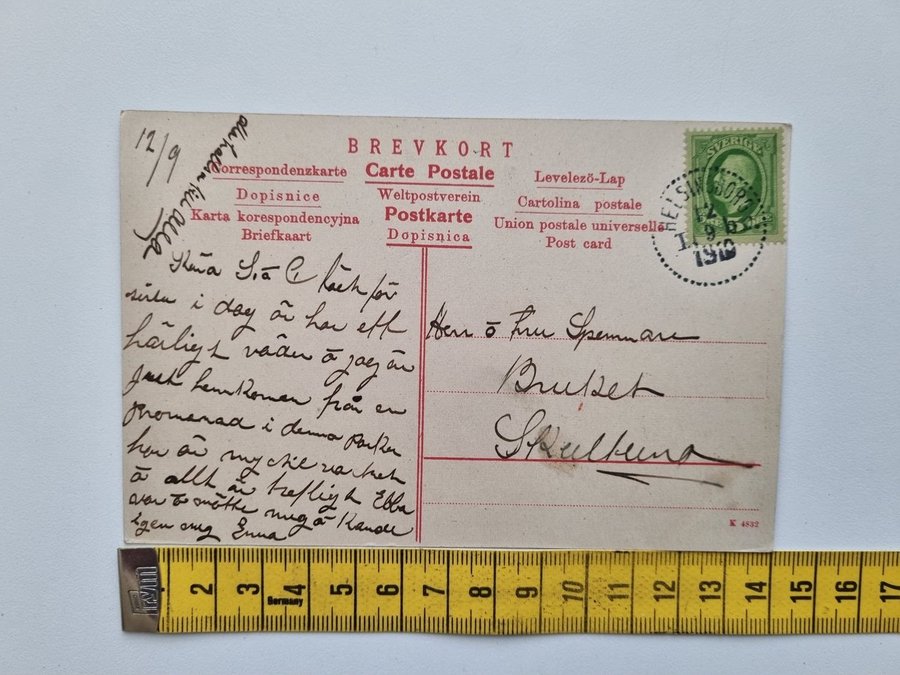 12/9
BREVKORT
Correspondenzkarte
Carte Postale
Levelező-Lap
Dopisnice
Weltpostverein
Cartolina postale
Karta korespondencyjna
Postkarte
Union postale universelle
Briefkaart
Dopisnica
Post card
SVERIGE
HELSINGBORG
12
9
1910
Kära S. å C. Tack för
i dag är har ett
härligt väder å jag är
just hemkomen från en
promenad i denna parken
har är mycket vackert
å allt är trefligt Ebba
var å mötte mig å kände
igen mig Enna
Herr å Fru Spennare
Bruket
Skultuna
K 4832
2 3 4 5 6 7 8 9 10 11 12 13 14 15 16 17
Germany